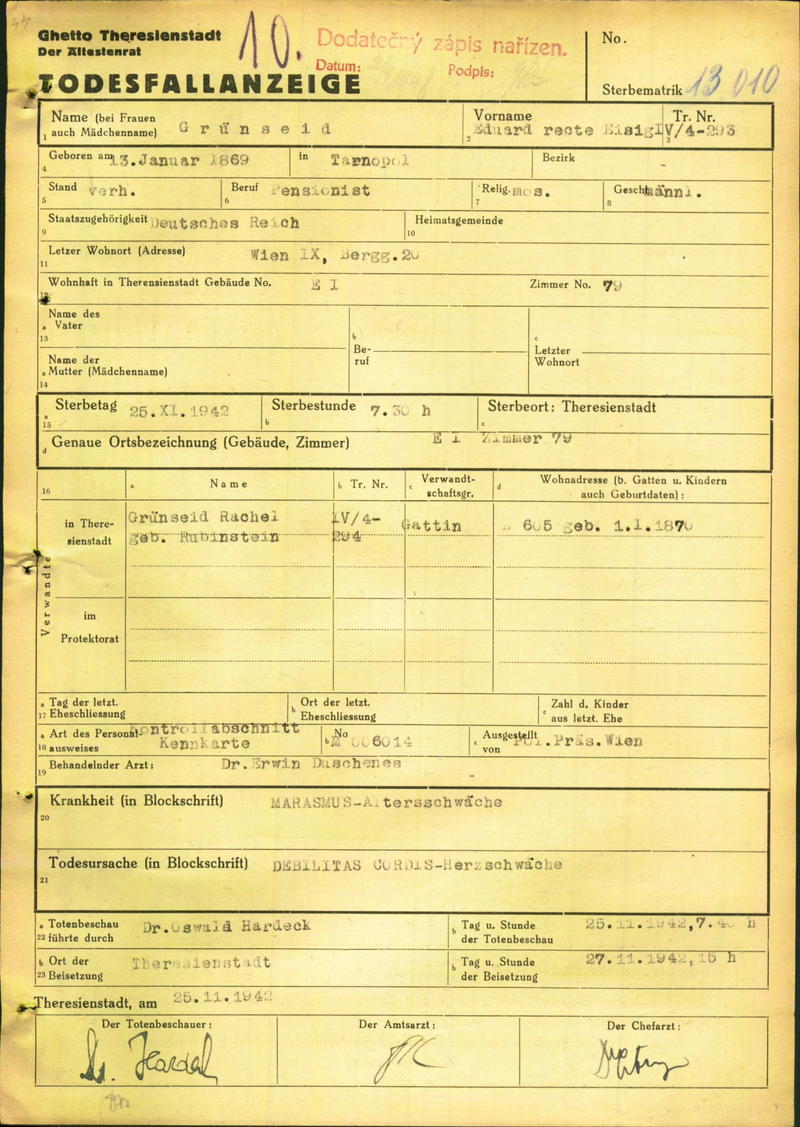 Ghetto Theresienstadt
Der Ältestenrat
TODESFALLANZEIGE
10.
Dodatečný zápis nařízen.
Datum:
Podpis:
No.
Sterbematrik 13010
Name (bei Frauen
1 auch Mädchenname) Grünseid
Vorname
2 Eduard recte Eisig
Tr. Nr.
3 IV/4-293
Geboren am 13.Januar 1869
4
in Tarnopol
Bezirk -
Stand verh.
5
Beruf Pensionist
6
Relig. mos.
7
Geschl. männl.
8
Staatszugehörigkeit Deutsches Reich
9
Heimatsgemeinde
10
Letzer Wohnort (Adresse) Wien IX, Bergg.20
11
Wohnhaft in Therensienstadt Gebäude No. E I
Zimmer No. 79
Name des
a Vater
13
b
Be-
ruf
c
Letzter
Wohnort
Name der
a Mutter (Mädchenname)
14
a Sterbetag 25.XI.1942
15
Sterbestunde 7.30 h
b
Sterbeort: Theresienstadt
c
d Genaue Ortsbezeichnung (Gebäude, Zimmer) E I Zimmer 79
16
a Name
b Tr. Nr.
c Verwandt-
schaftsgr.
d Wohnadresse (b. Gatten u. Kindern
auch Geburtdaten):
Verwandte
in There-
sienstadt
Grünseid Rachel
geb. Rubinstein
IV/4-
294
Gattin
605 geb. 1.I.1870
im
Protektorat
a Tag der letzt.
17 Eheschliessung
b Ort der letzt.
Eheschliessung
c Zahl d. Kinder
aus letzt. Ehe
a Art des Personal-
18 ausweises
Kontrollabschnitt
Kennkarte
b No 006014
c Ausgestellt
von Pol.Präs.Wien
Behandelnder Arzt: Dr.Erwin Daschenes
19
-
Krankheit (in Blockschrift) MARASMUS-Altersschwäche
20
Todesursache (in Blockschrift) DEBILITAS CORDIS-Herzschwäche
21
a Totenbeschau
22 führte durch Dr.Oswald Hardeck
b Tag u. Stunde
der Totenbeschau 25.11.1942,7.40 h
b Ort der
23 Beisetzung Theresienstadt
b Tag u. Stunde
der Beisetzung 27.11.1942, 15 h
Theresienstadt, am 25.11.1942
Der Totenbeschauer:
Der Amtsarzt:
Der Chefarzt: